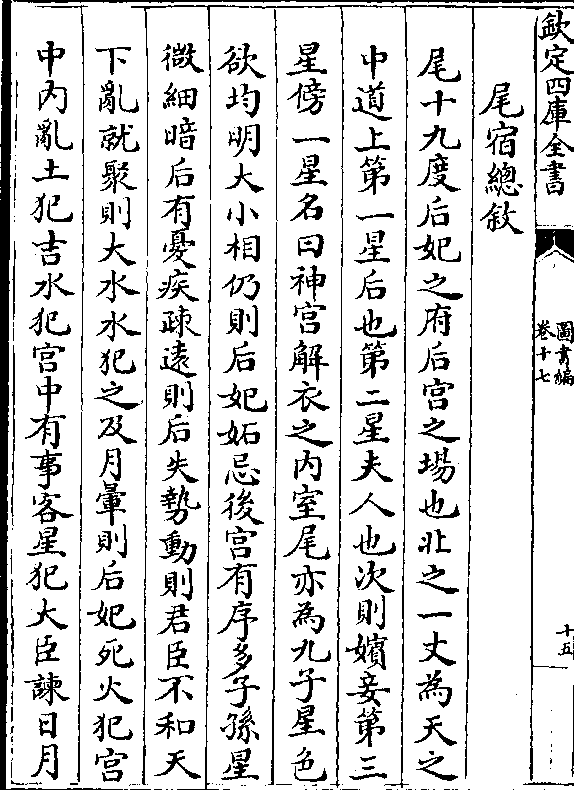 欽定四庫全書
圖書編
卷十七
十五
尾宿總敘
尾十九度后妃之府后宮之場也北之一丈為天之
中道上第一星后也第二星夫人也次則嬪妾第三
星傍一星名曰神宮解衣之内室尾亦為九子星色
欲均明大小相仍則后妃妬忌後宮有序多子孫星
微細暗后有憂疾疎遠則后失勢動則君臣不和天
下亂就聚則大水水犯之及月暈則后妃死火犯宮
中内亂土犯吉水犯宮中有事客星犯大臣諫日月